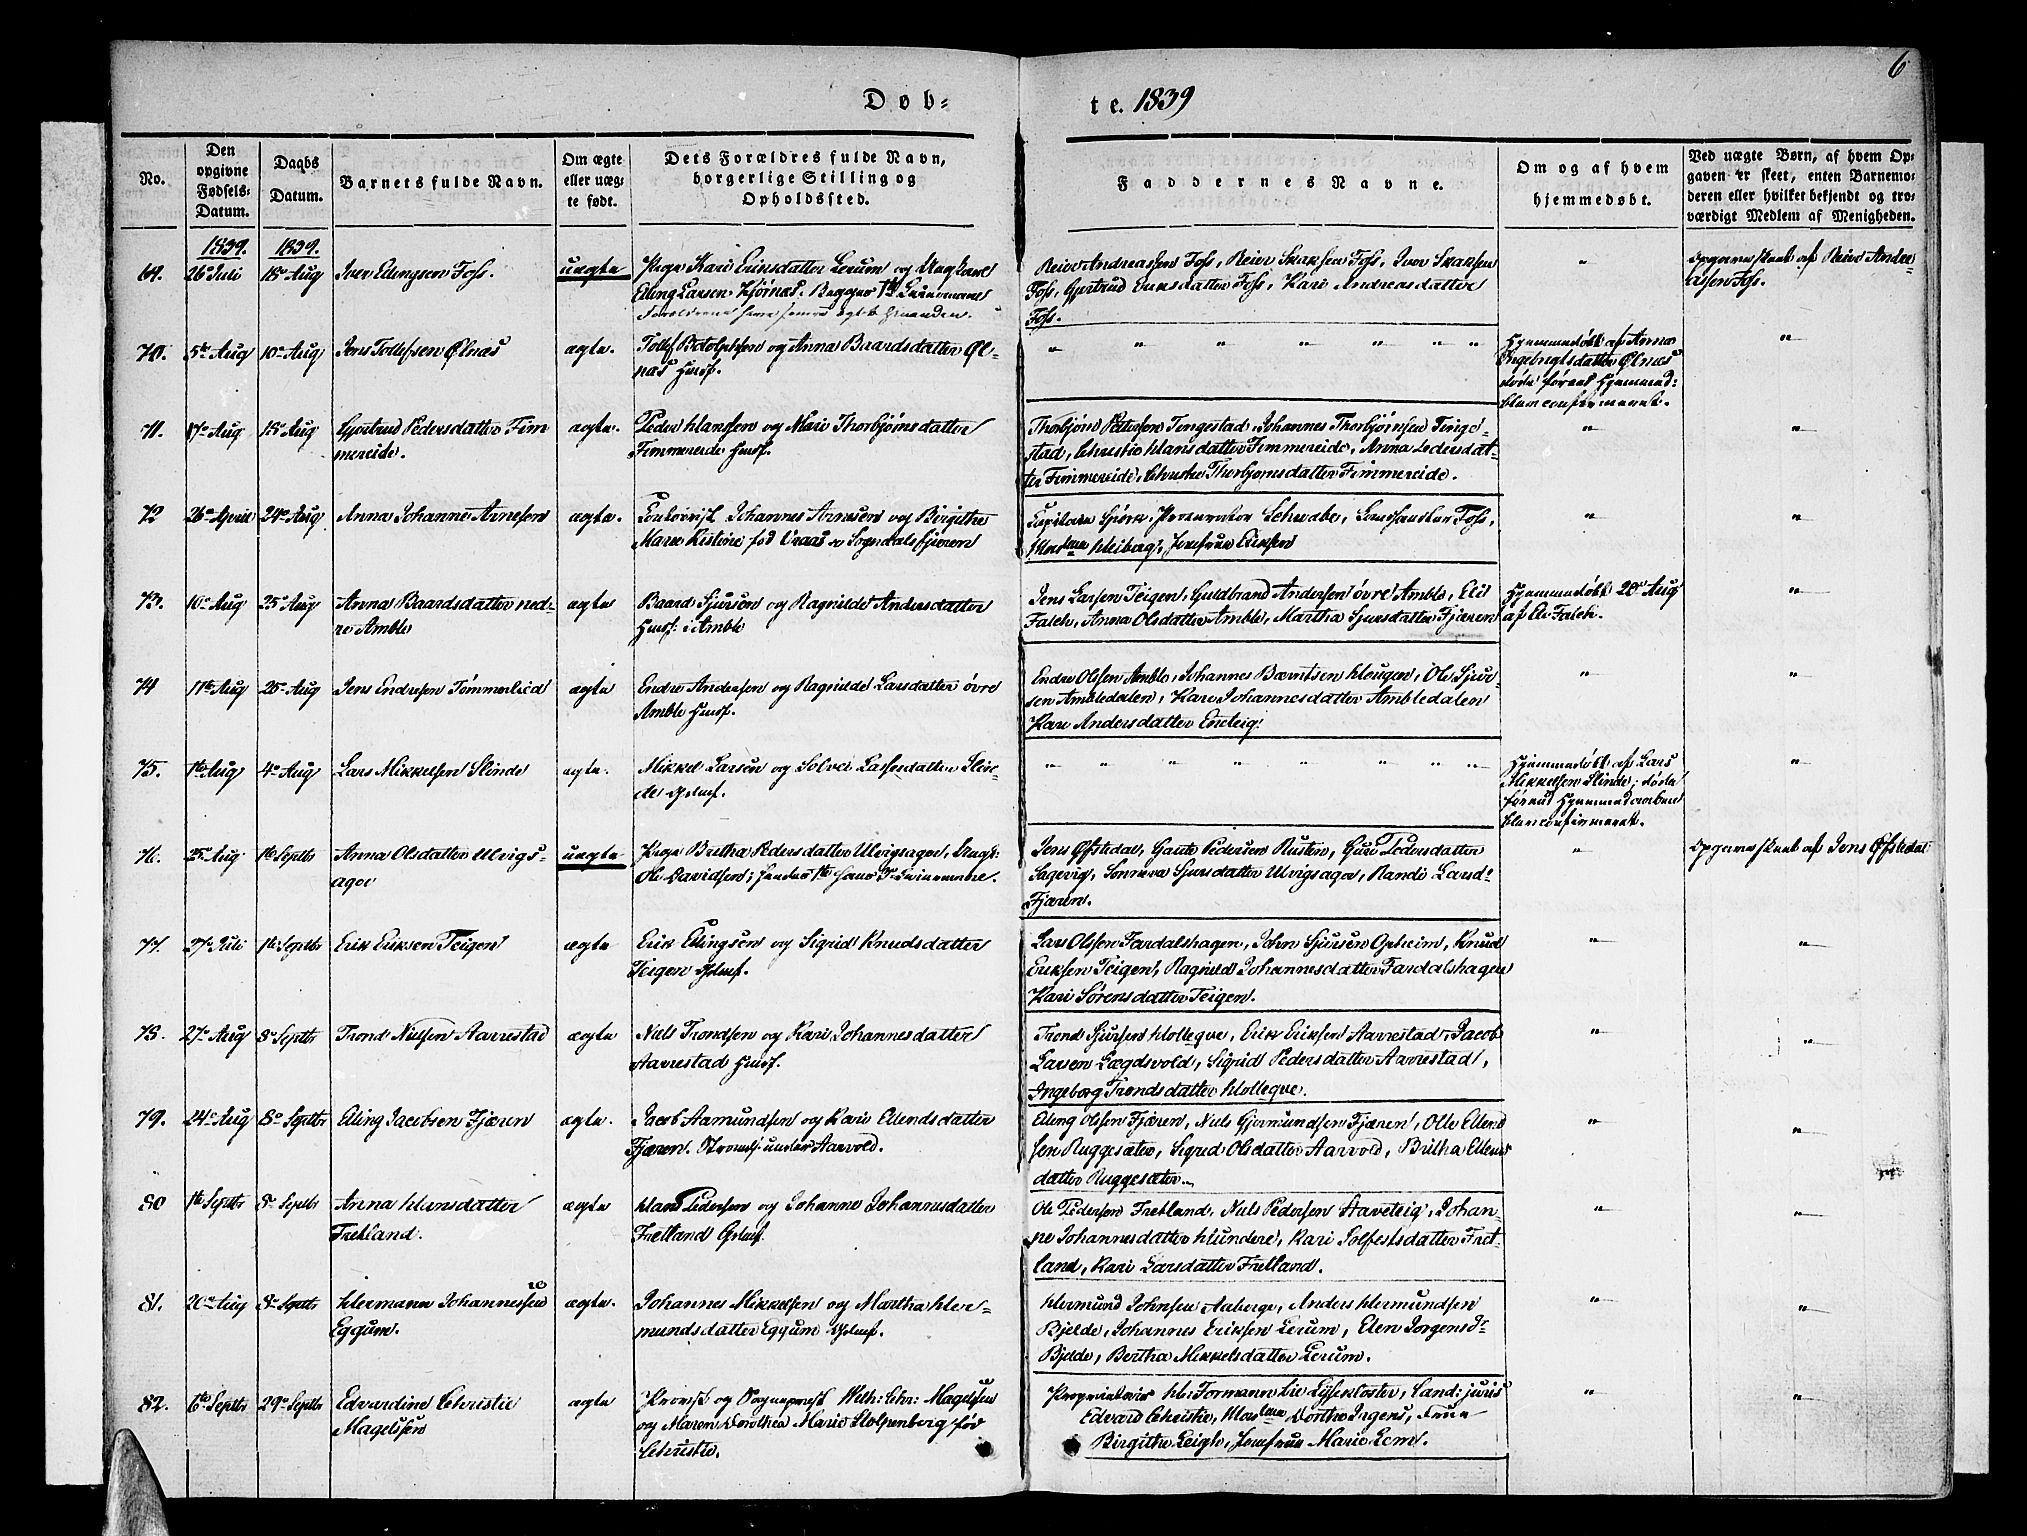 6
Døb-
te. 1839
No.
Den opgivne Fødsels-Datum.
Daabs Datum.
Barnets fulde Navn.
Om ægte eller uægte født.
Dets Forældres fulde Navn, borgerlige Stilling og Opholdssted.
Faddernes Navne.
Om og af hvem hjemmedøbt.
Ved uægte Børn, af hvem Opgaven er skeet, enten Barnemoderen eller hvilket bekjendt og troværdigt Medlem af Menigheden.
1839. 1839.
69. 26 Juli 18 Aug Iver Erlingsen Foss. uægte Pige Kari Eriksdatter Lerum og Ungkarl
Erling Larsen Kjørnæs. Begges 1te Leiermaal
Reier Andreassen Foss, Reier Skaksen Foss, Iver Skaksen
Foss, Gjertrud Eriksdatter Foss, Kari Andreasdatter
Foss.
" Opgaven skeet af Reier Andre-
assen Foss.
70. 5te Aug 10 Aug Jens Tollefsen Ølnæs ægte. Tollef Botolphsen og Anna Baardsdatter Øl-
næs Huusf.
" " " " " " " "
Hjemmedøbt af Anna
Ingebrigtsdatter Ølnæs
døde førend Hjemmed:
blev confirmeret.
"
71. 7de Aug 18 Aug Gjertrud Pedersdatter Fim
mereide. ægte. Peder Hansen og Mari Thorbjørnsdatter
Fimmereide Huusf.
Thorbjørn Pettersen Tingestad, Johannes Thorbjørnsen Tinge-
stad, Christie Hansdatter Fimmereide, Anna Pedersdat-
ter Fimmereide, Christie Thorbjørnsdatter Fimmereide.
" "
72 26 April 24 Aug Anna Johanne Arnesen ægte. Contorist Johannes Arnesen og Birgithe
Marie Kistine fød Vraas Sogndalsfjæren
Capitain Bjørn, Procurator Schwabe, Landhandler Foss,
Madame Heiberg, Jomfrue Eriksen
" "
73. 10 Aug 25 Aug Anna Baardsdatter ned-
re Amble ægte Baard Sjursen og Ragnilde Andersdatter
Huusf: i Amble
Jens Larsen Teigen, Guldbrand Andersen øvre Amble, Eli
Falch, Anna Olsdatter Amble, Martha Sjursdatter Fjæren
Hjemmedøbt 20 Aug
af Eli Falch.
"
74 11te Aug 25 Aug Jens Endresen Tømmerlied ægte Endre Andersen og Ragnilde Larsdatter øvre
Amble Huusf.
Endre Olsen Amble, Johannes Berntsen Haugen, Ole Sjur-
sen Ambledalen, Kari Johannesdatter Ambledalen
Kari Andersdatter Eneteig.
" "
75. 1te Aug 4 Aug Lars Mikkelsen Slinde ægte. Mikkel Larsen og Solvei Lassesdatter Slin-
de Gbmf.
" " " " " " " "
Hjemmedøbt af Lars
Mikkelsen Slinde; døde
førend Hjemmedaaben
blev confirmeret.
"
76. 25 Aug 1te Septbr Anna Olsdatter Ulvigs-
ager uægte Pige Britha Pedersdatter Ulvigsager, Ungk:
Ole Davidsen; hendes 1te hans 2 Leiermaal.
Jens Øfstedal, Gaute Pedersen Rusten, Guri Pedersdatter
Fagevig, Synneva Sjursdatter Ulvigsager, Randi Larsdr
Fjæren.
" Opgaven skeet af Jens Øfstedal
77. 27 Juli 1te Septbr Erik Eriksen Teigen ægte Erik Erlingsen og Sigrid Knudsdatter
Teigen Gbmf.
Lars Olsen Fardalshagen, John Sjursen Opheim, Knud
Eriksen Teigen, Ragnilde Johannesdatter Fardalshagen
Kari Sørensdatter Teigen.
" "
78. 27 Aug 8 Septbr Trond Nielsen Aarrestad ægte Niels Trondsen og Kari Johannesdatter
Aarrestad Huusf.
Trond Sjursen Holleque, Erik Eriksen Aarrestad, Jacob
Larsen Lægdsvold, Sigrid Pedersdatter Aarrestad,
Ingeborg Trondsdatter Holleque.
" "
79. 24 Aug 8 Septbr Erling Jacobsen Fjæren ægte. Jacob Aamundsen og Kari Erlendsdatter
Fjæren. under Aarvold.
Erling Olsen Fjæren, Niels Gjermundsen Fjæren, Ole Ellend
sen Ruggesæter, Sigrid Olsdatter Aarvold, Britha Ellends
datter Ruggesæter.
" "
80 1te Septbr 8 Septbr Anna Hansdatter
Fretland. ægte Hans Pedersen og Johanne Johannesdatter
Fretland Gbmf.
Ole Pedersen Fretland, Niels Pedersen Staveteig, Johan-
ne Johannesdatter Hundere, Kari Solfestsdatter Fret-
land, Kari Larsdatter Fretland.
" "
81. 20 Aug 8 Septbr Hermann Johannessen
Eggum. ægte. Johannes Mikkelsen og Martha Her-
mundsdatter Eggum Gbmf.
Hermund Johnsen Aaberge, Anders Hermundsen
Bjelde, Johannes Eriksen Lerum, Elen Jørgensdr
Bjelde, Bertha Mikkelsdatter Lerum.
" "
82. 6te Septbr 29 Septbr Edvardine Christie
Magelssen ægte Provst og Sognepræst Wilh: Chr: Magelssen
og Maren Dorothea Marie Stolpenberg fød
Christie.
Proprietair H: Formann Lie Lysekloster, Cand: juris
Edvard Christie, Madame Dorthe Irgens, Frue
Birgithe Leigh, Jomfrue Marie Lem.
" "